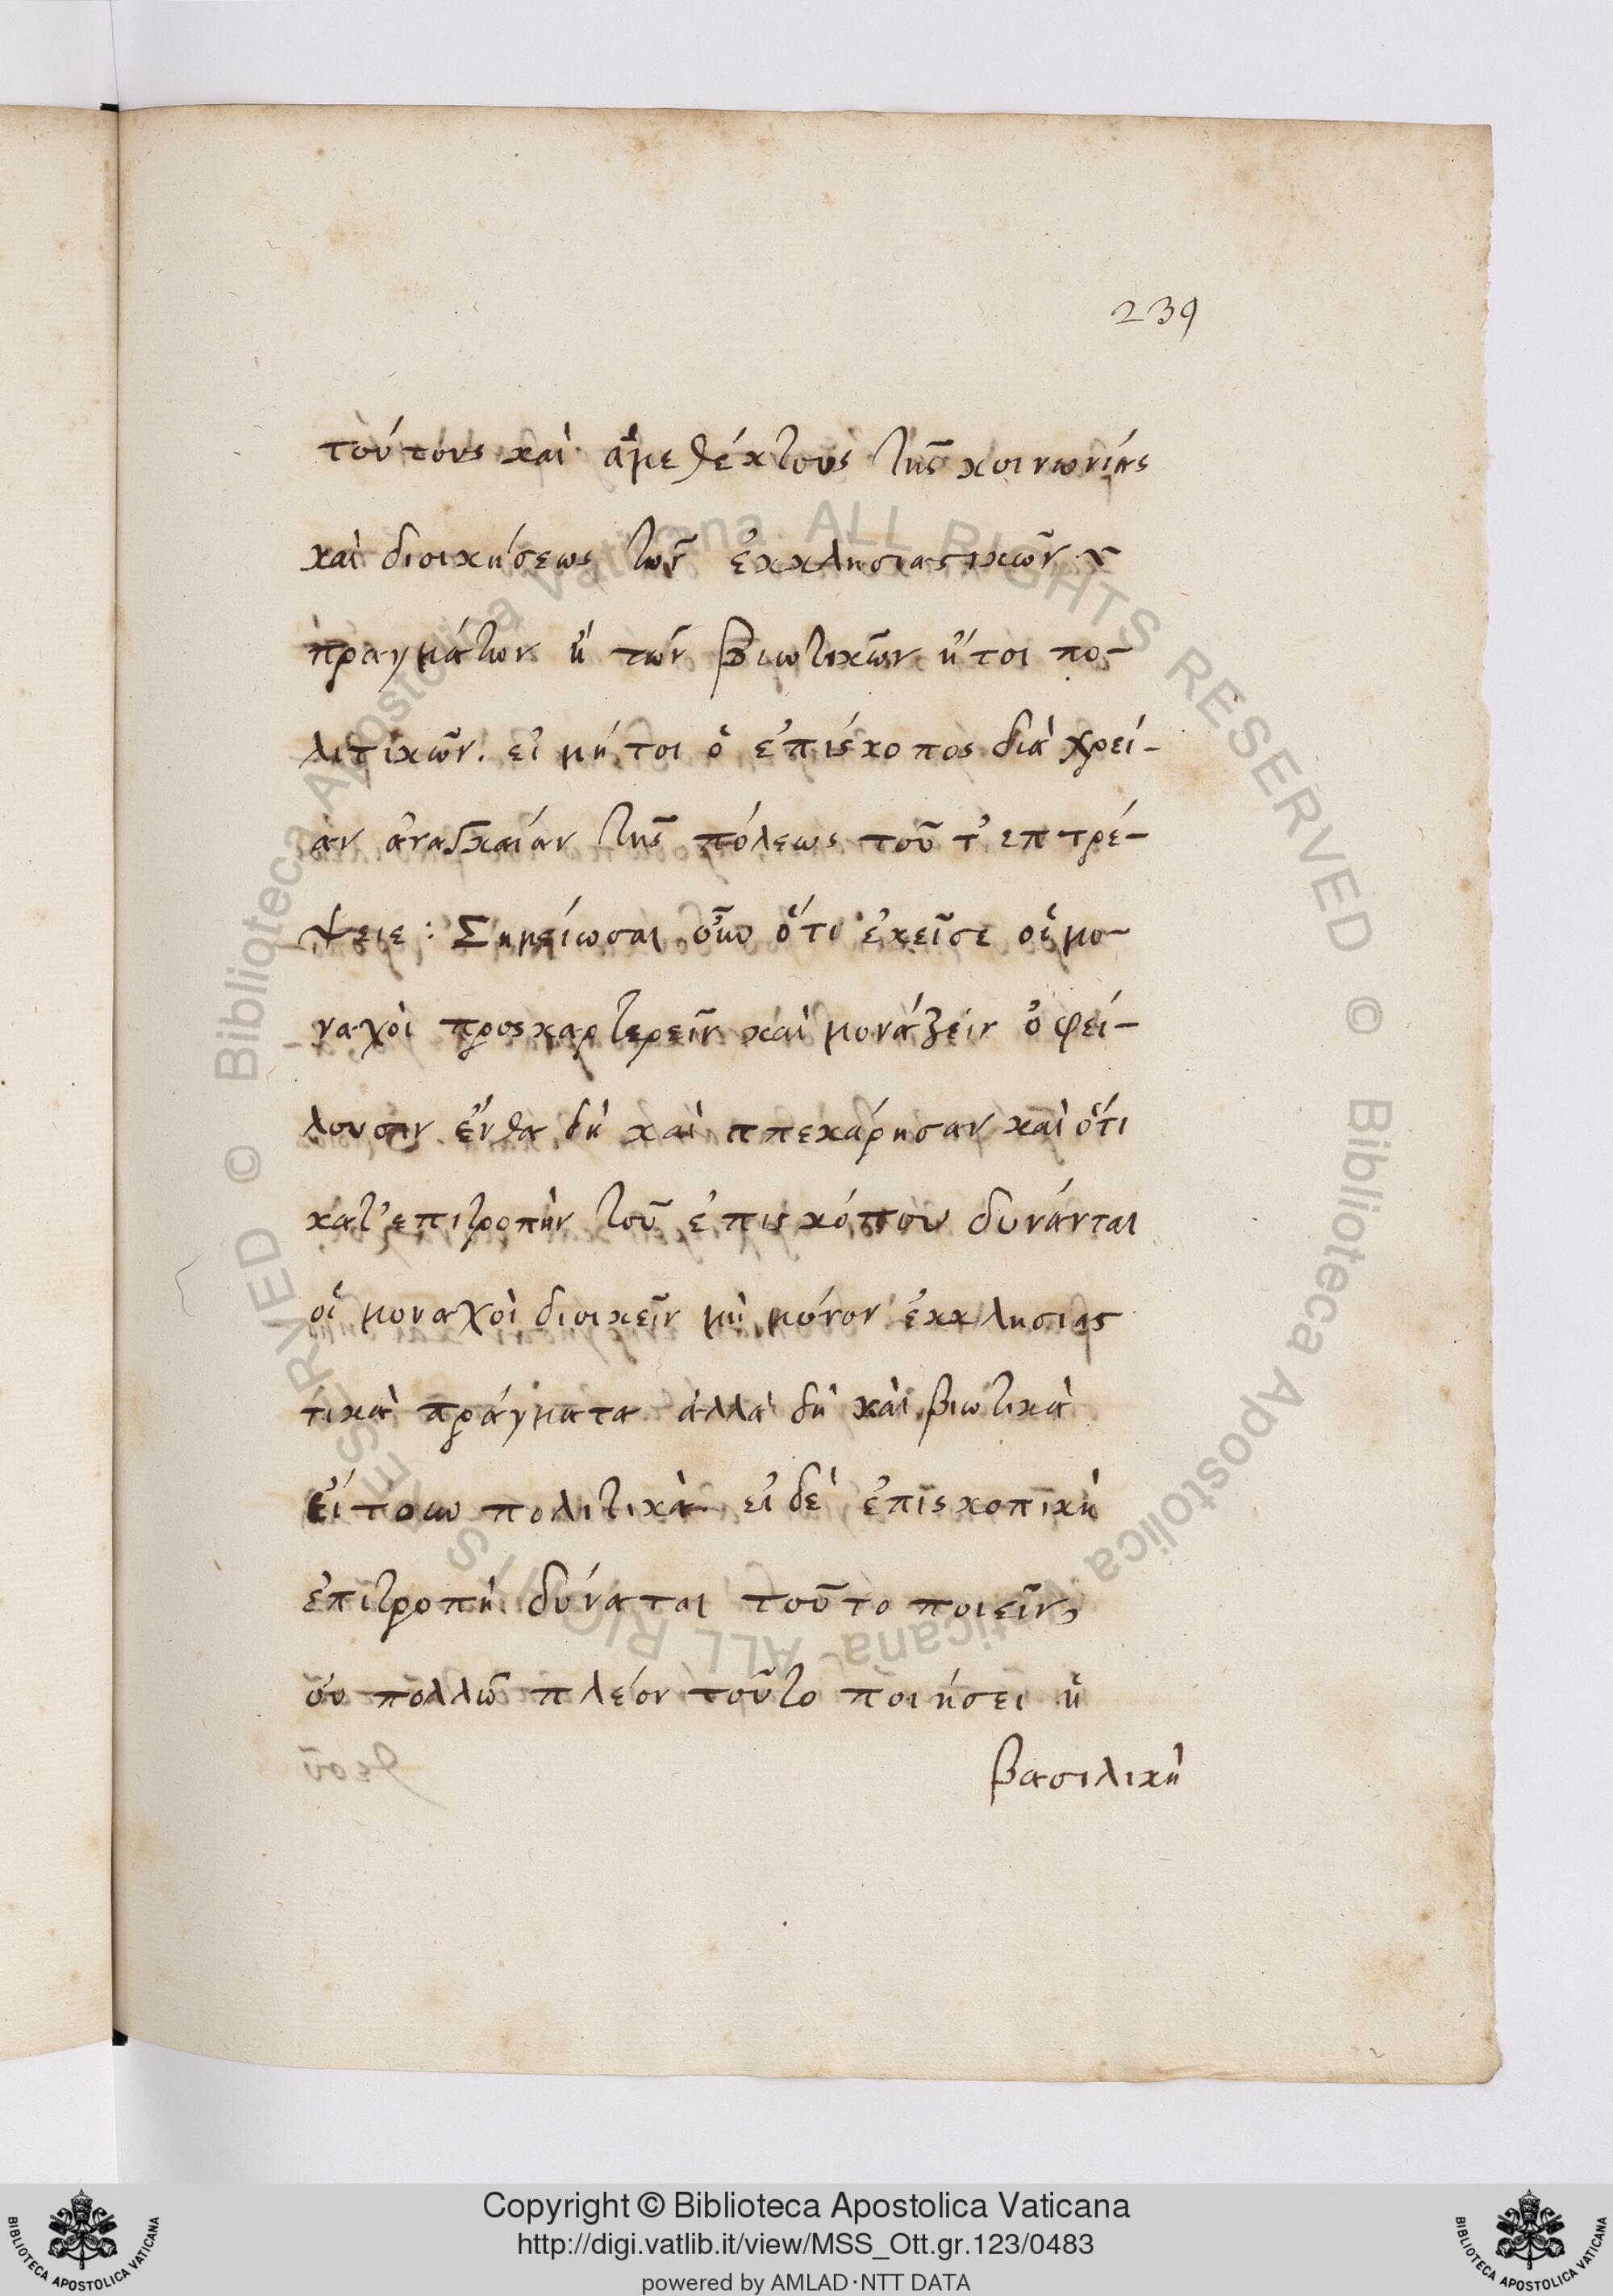 239
τούτους καὶ ἀμεθέκτους τῆς κοινωνίας
καὶ διοικήσεως τῶν ἐκκλησιαστικῶν
πραγμάτων ἢ τῶν βιωτικῶν ἤτοι πο-
λιτικῶν. εἰ μήτοι ὁ ἐπίσκοπος διὰ χρεί-
αν ἀναγκαίαν τῆς πόλεως τοῦτ' επιτρέ-
ψειε : Σημείωσαι οὖν ὅτι ἐκεῖσε οἱ μο-
ναχοὶ προσκαρτερεῖν καὶ μονάζειν ὀφεί-
λουσιν ἔνθα δὴ καὶ ππεκάρησαν καὶ ὅτι
κατ' επιτροπὴν τοῦ ἐπισκόπου δυνάνται
οἱ μοναχοὶ διοικεῖν μὴ μόνον ἐκκλησιας
τικὰ πράγματα ἀλλὰ δὴ καὶ βιωτικὰ
εἴτουν πολιτικὰ. εἰ δὲ ἐπισκοπικὴ
ἐπιτροπὴ δύναται τοῦτο ποιεῖν,
οὐ πολλῶ πλέον τοῦτο ποιήσει ἡ
βασιλικὴ
Copyright © Biblioteca Apostolica Vaticana
http://digi.vatlib.it/view/MSS_Ott.gr.123/0483
powered by AMLAD·NTT DATA
BIBLIOTECA APOSTOLICA VATICANA
BIBLIOTECA APOSTOLICA VATICANA
© Biblioteca Apostolica Vaticana ALL RIGHTS RESERVED
© Biblioteca Apostolica Vaticana ALL RIGHTS RESERVED